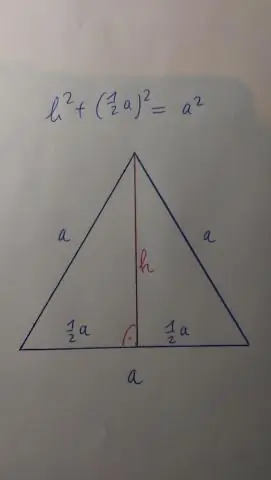 h² + (½a)² = a²
a
a
h
½a
½a
a